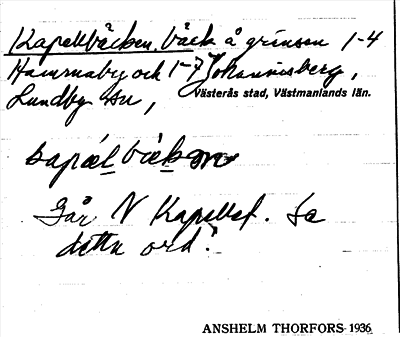 Kapellbäcken, bäck å gränsen 1-4
Hammaby och 1-7 Johannisberg,
Lundby sn,
Västerås stad, Västmanlands län.
Går N Kapellet. Se
detta ord.
ANSHELM THORFORS 1936